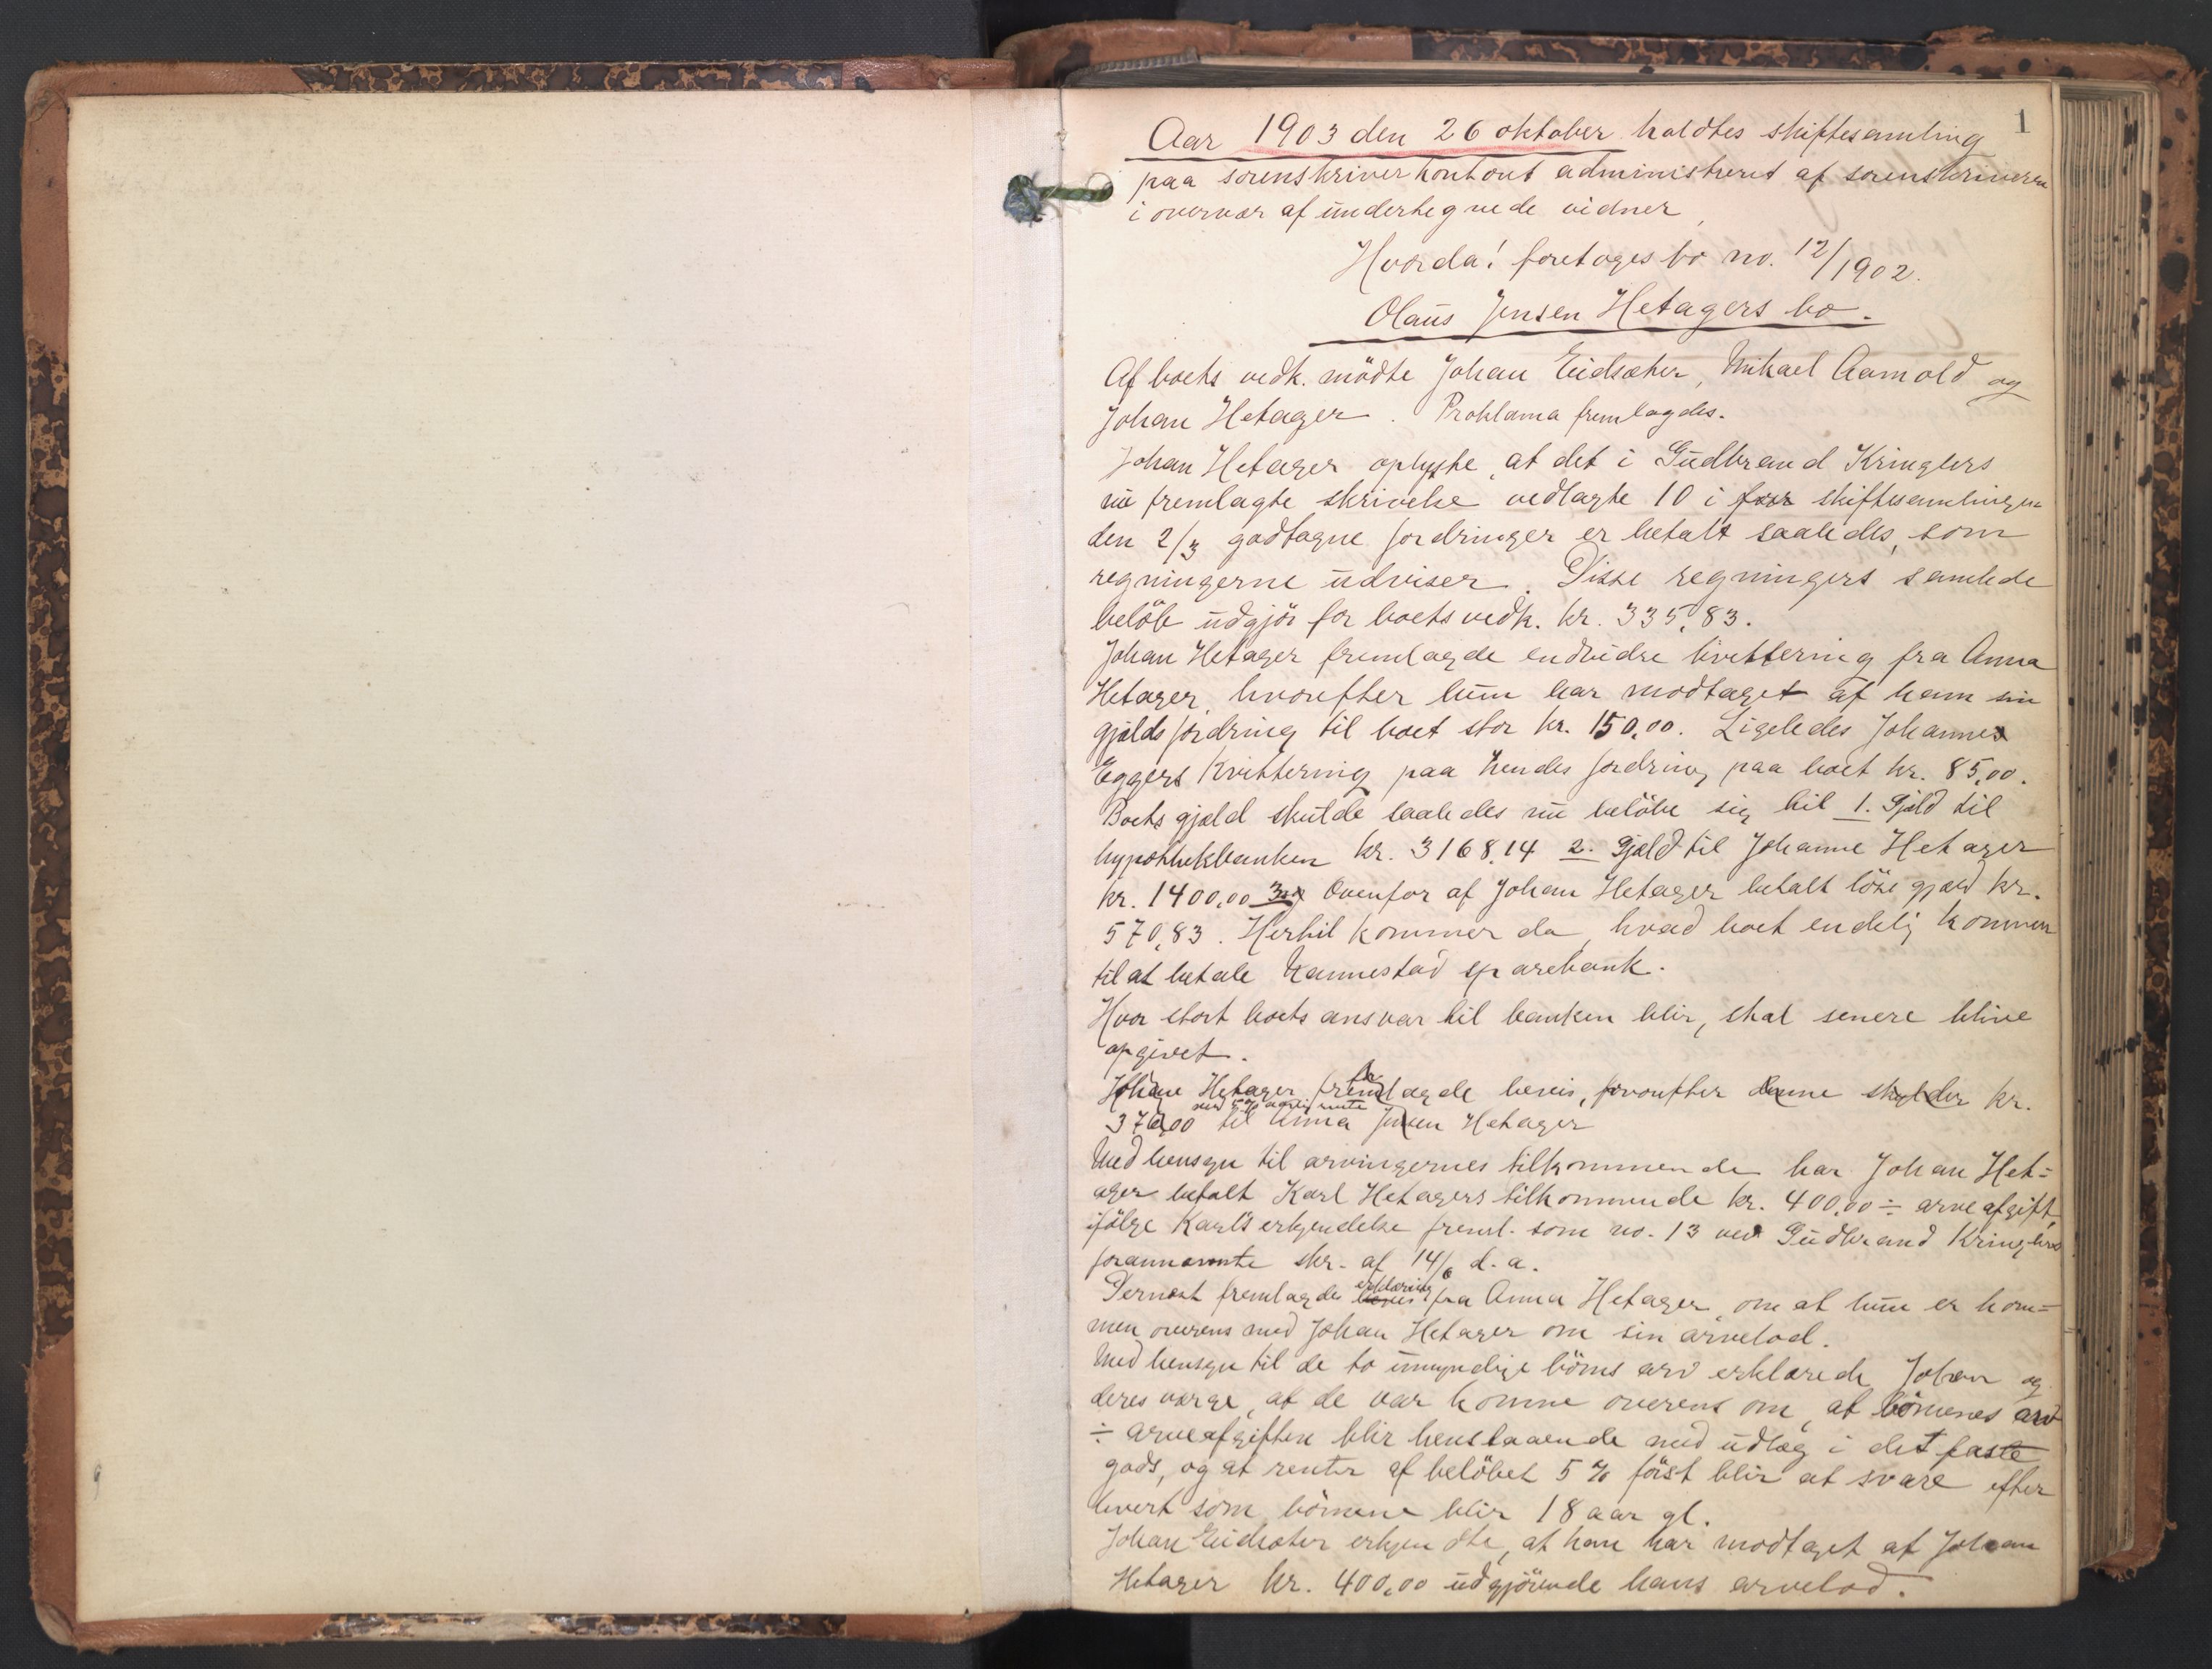 1
Aar 1903 den 26 oktober holdtes skiftesamling
paa sorenskriverkontoret administreret af sorenskriveren
i overvær af undertegnede vidner,
Hvorda! foretoges bo no. 12/1902.
Olaus Jensen Hetagers bo.
Af boets vedk. mödte Johan Eidsæter, Mikael Aamold og
Johan Hetager. Proklama fremlagdes.
Johan Hetager oplyste, at det i Gudbrand Kringlers
nu fremlagte skrivelse vedlagte 10 i skiftesamlingen
den 2/3 godtagne fordringer er betalt saaledes, som
regningerne udviser. Disse regningers samlede
belöb udgjör for boets vedk. kr. 335,83.
Johan Hetager fremlagde endvidre kvittering fra Anna
Hetager, hvorefter hun har modtaget af ham sin
gjældsfordring til boet stor kr. 150,00. Ligeledes Johannes
Eggers Kvittering paa hendes fordring paa boet kr. 85,00.
Boets gjæld skulde saaledes nu belöbe sig til 1. Gjæld til
hypothekbanken kr. 3168,14 2. Gjæld til Johanne Hetager
kr. 1400,00 3. Ovenfor af Johan Hetager betalt löse gjæld kr.
570,83. Hertil kommer da, hvad boet endelig kommer
til at betale Nannestad sparebank.
Hvor stort boets ansvar til banken blir, skal senere blive
opgivet.
Johan Hetager fremlagde bevis, hvorefter denne skylder kr.
370,00 med 5% aarlig rente til Anna Jensen Hetager
Med hensyn til arvingernes tilkommende har Johan Het=
ager betalt Karl Hetagers tilkommende kr. 400,00 ÷ arveafgift,
ifölge Karl's erkjendelse freml. som no. 13 ved Gudbrand Kringlers
forannævnte skr. af 14/6 d. a.
Dernæst fremlagdes bevis erklæring fra Anna Hetager, om at hun er kom=
men overens med Johan Hetager om sin arvelod.
Med hensyn til de to umyndige börns arv erklærede Johan og
deres værge, at de var komne overens om, at börnenes arv
÷ arveafgiften blir henstaaende med udlæg i det faste
gods, og at renter af belöbet 5 % först blir at svare efter
hvert som börnene blir 18 aar gl.
Johan Eidsæter erkjendte, at han har modtaget af Johan
Hetager kr. 400,00 udgjörende hans arvelod.